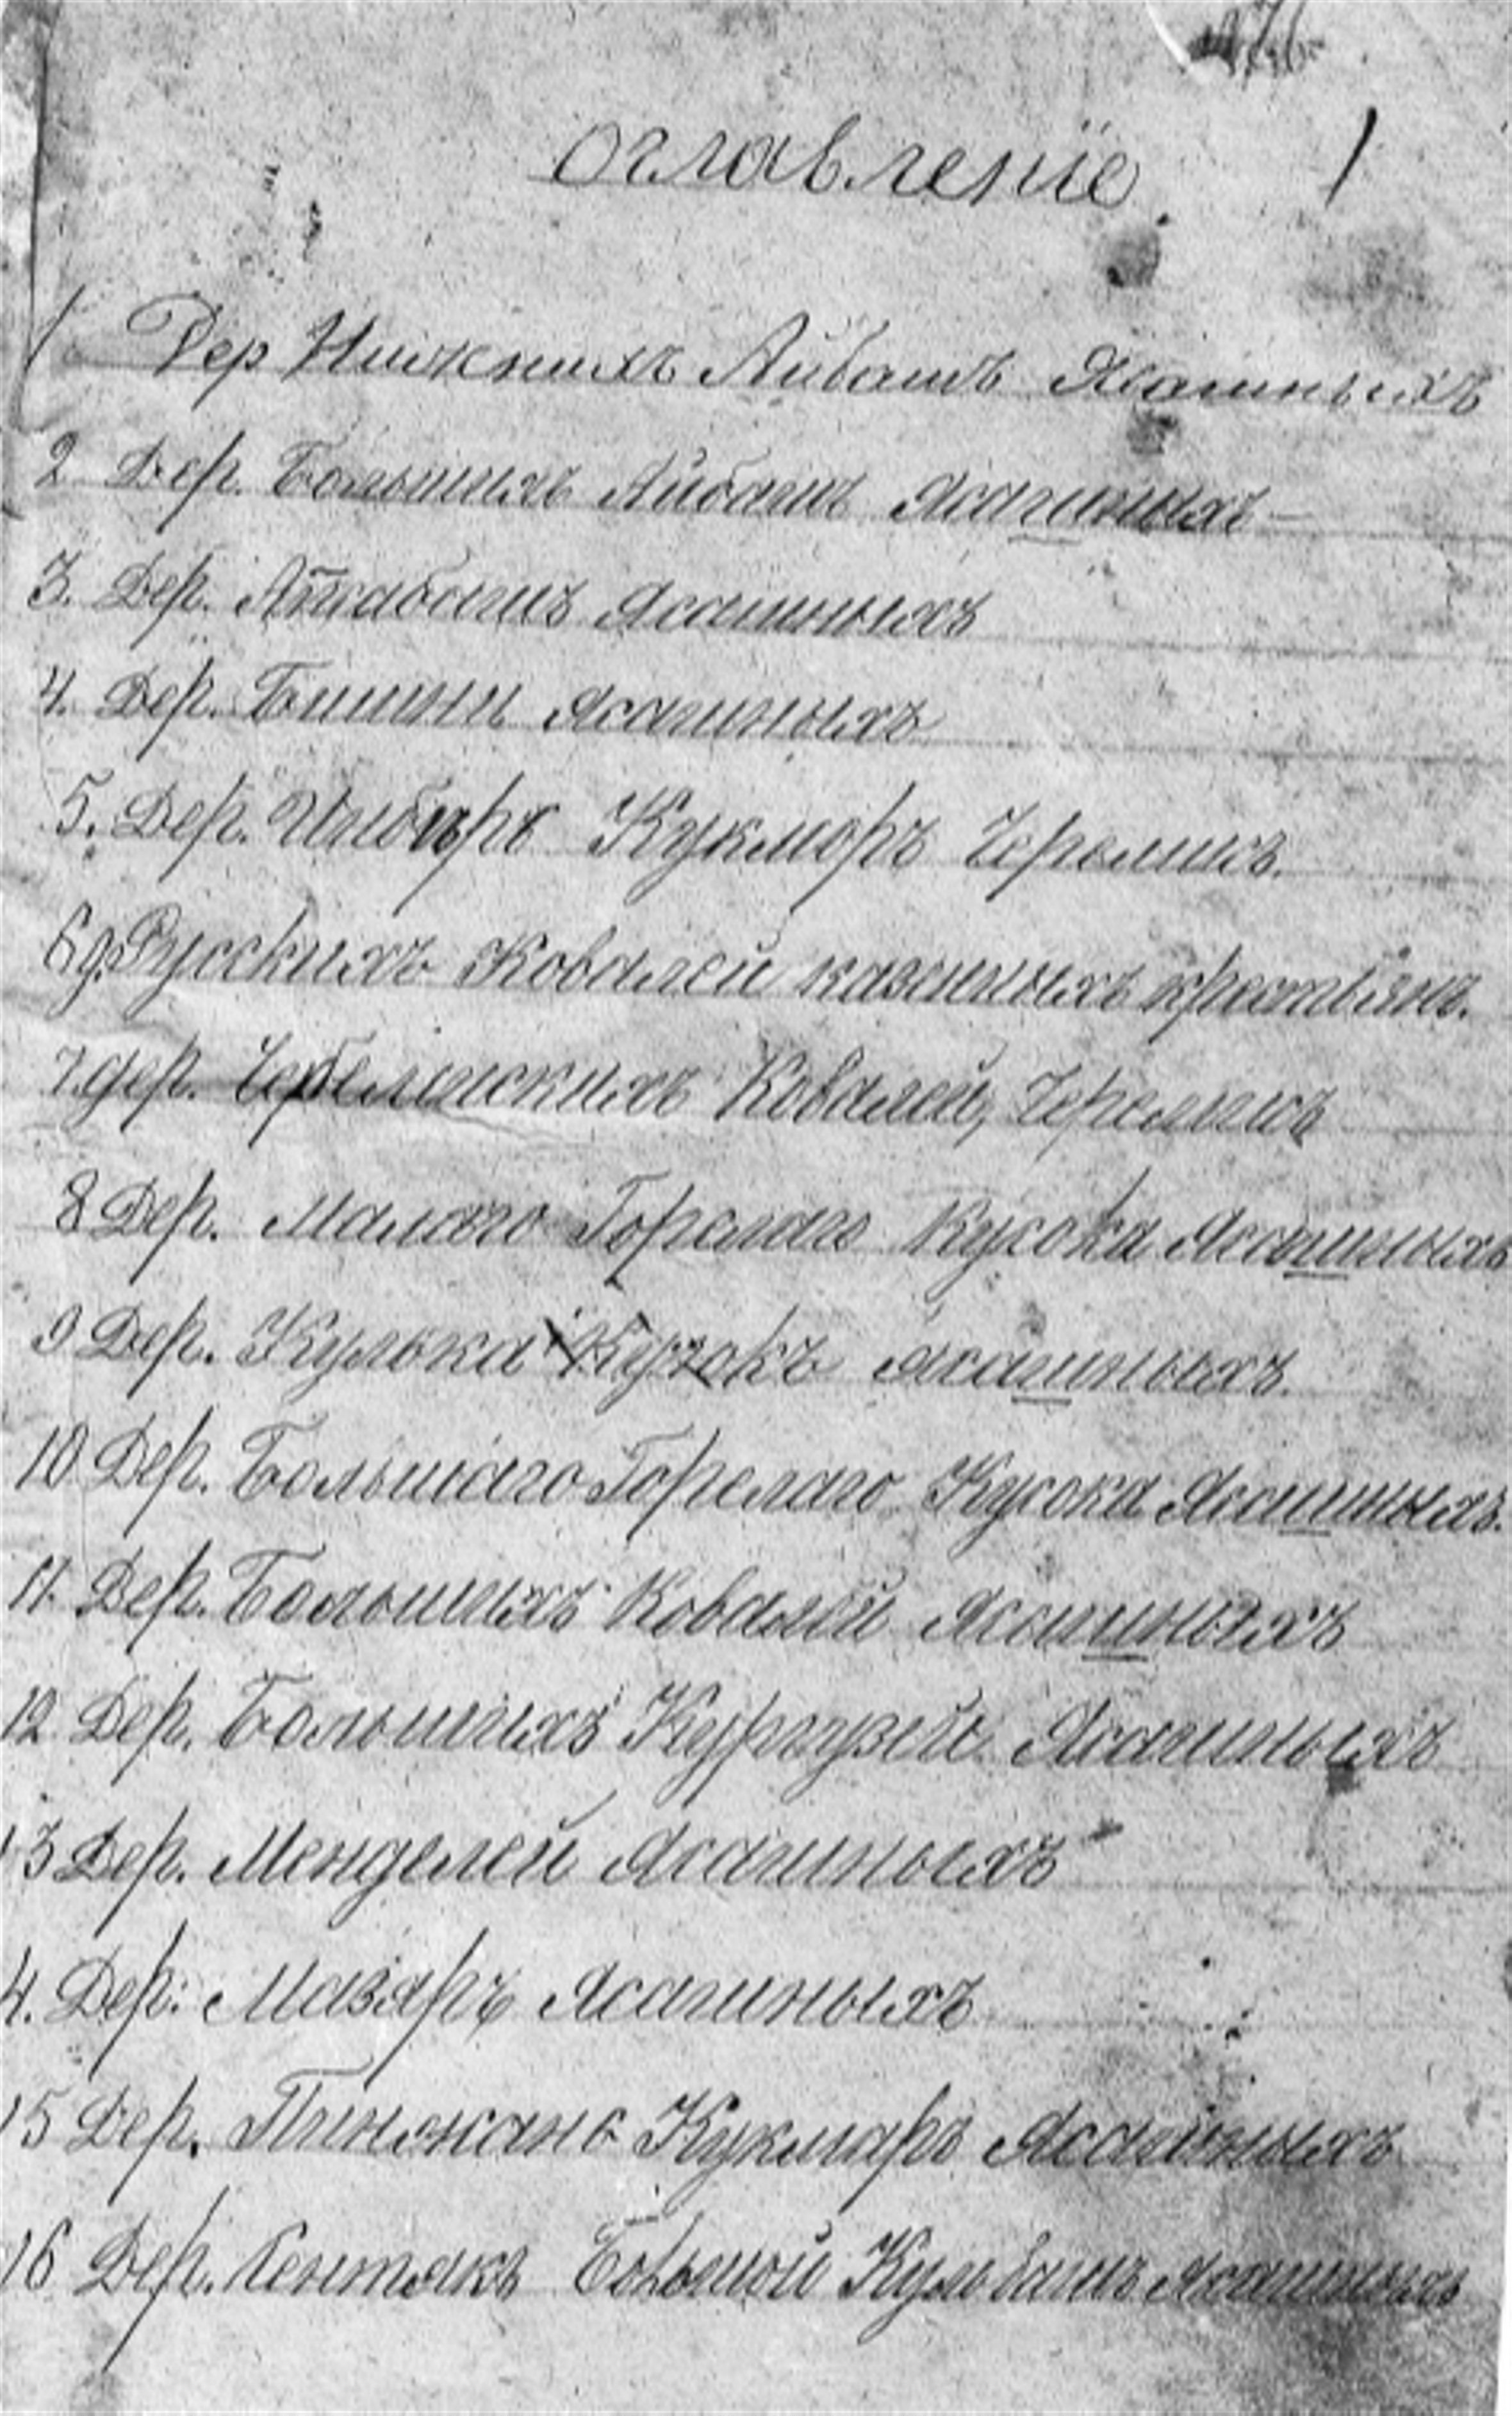 оглавленіе 1
1 Дер Нижнихъ Айбашъ Ясашныхъ
2 Дер. Большихъ Айбашъ Ясашныхъ
3. Дер. Ясашныхъ
4. Дер. Бишни Ясашныхъ
5. Дер. Кукморъ Черемисъ.
6 д. Русскихъ Ковалей казенныхъ крестьянъ.
7. дер. Черемисскихъ Ковалей, Черемисъ
8 Дер. Малаго Горелаго Кусока Ясашныхъ
9 Дер. Кулька Ясашныхъ.
10 Дер. Большаго Горелаго Кусока Ясашныхъ.
11. Дер. Большихъ Ковалей Ясашныхъ
12 Дер. Большихъ Кургузей Ясашныхъ
13 Дер. Менделей Ясашныхъ
4. Дер. Мазаръ Ясашныхъ
15 Дер. Кукмаръ Ясашныхъ
16 Дер. Сентякъ Большой Кульбашъ Ясашныхъ